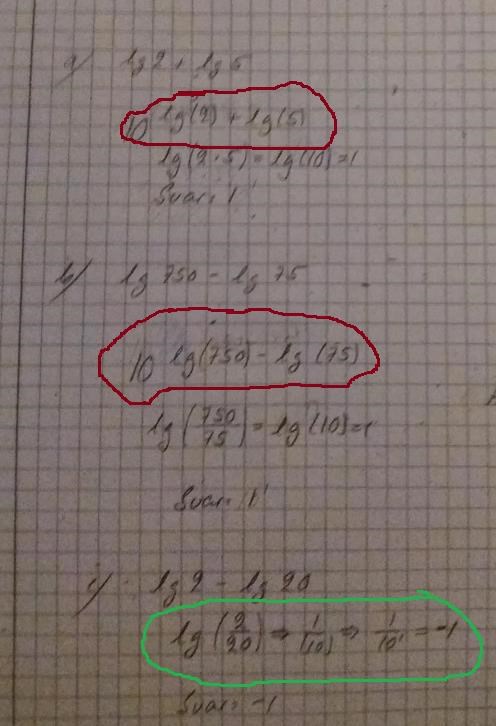 a) lg 2 + lg 5
10 lg(2) + lg(5)
lg(2·5) = lg(10) = 1
Svar: 1
b) lg 750 - lg 75
10 lg(750) - lg (75)
lg(750/75) = lg(10) = 1
Svar: 1
c) lg 2 - lg 20
lg(2/20) ⇒ 1/(10) ⇒ 1/10¹ = -1
Svar: -1